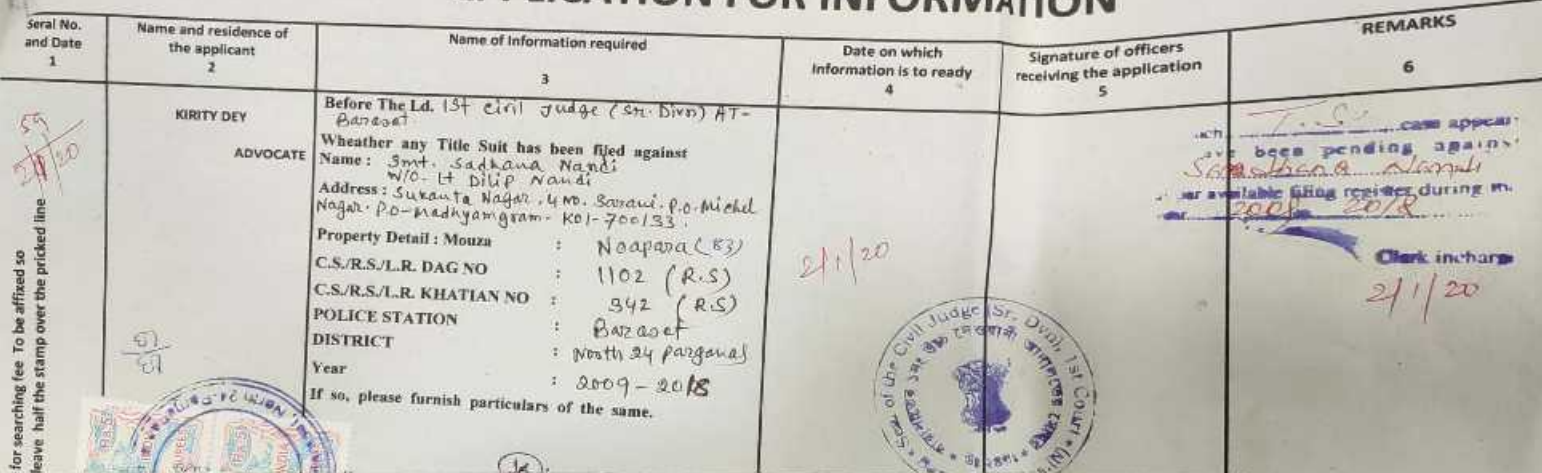 APPLICATION FOR INFORMATION
Seral No.
and Date
1
Name and residence of
the applicant
2
Name of Information required
3
Date on which
Information is to ready
4
Signature of officers
receiving the application
5
REMARKS
6
59
2/1/20
KIRITY DEY
ADVOCATE
Before The Ld. 1st Civil Judge (Sr. Divn) AT-
Barasat
Wheather any Title Suit has been filed against
Name : Smt. Sadhana Nandi
W/O- Lt Dilip Nandi
Address : Sukanta Nagar, 4 No. Sarani, P.O. Michel
Nagar. P.O- Madhyamgram- Kol-700133.
Property Detail : Mouza : Noapara (83)
C.S./R.S./L.R. DAG NO : 1102 (R.S)
C.S./R.S./L.R. KHATIAN NO : 942 (R.S)
POLICE STATION : Barasat
DISTRICT : North 24 Parganas
Year : 2009-2018
If so, please furnish particulars of the same.
2/1/20
T.S. case appear
been pending agains
Nandi
available filing register during
2018
Clerk incharge
2/1/20
for searching fee To be affixed so
leave half the stamp over the pricked line
Seal of the Civil Judge (Sr. Dvn), 1st Court